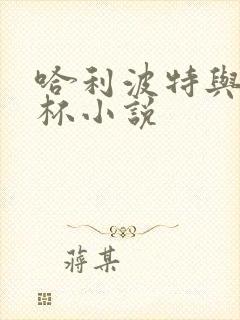 哈利波特與
杯小説
蔣某